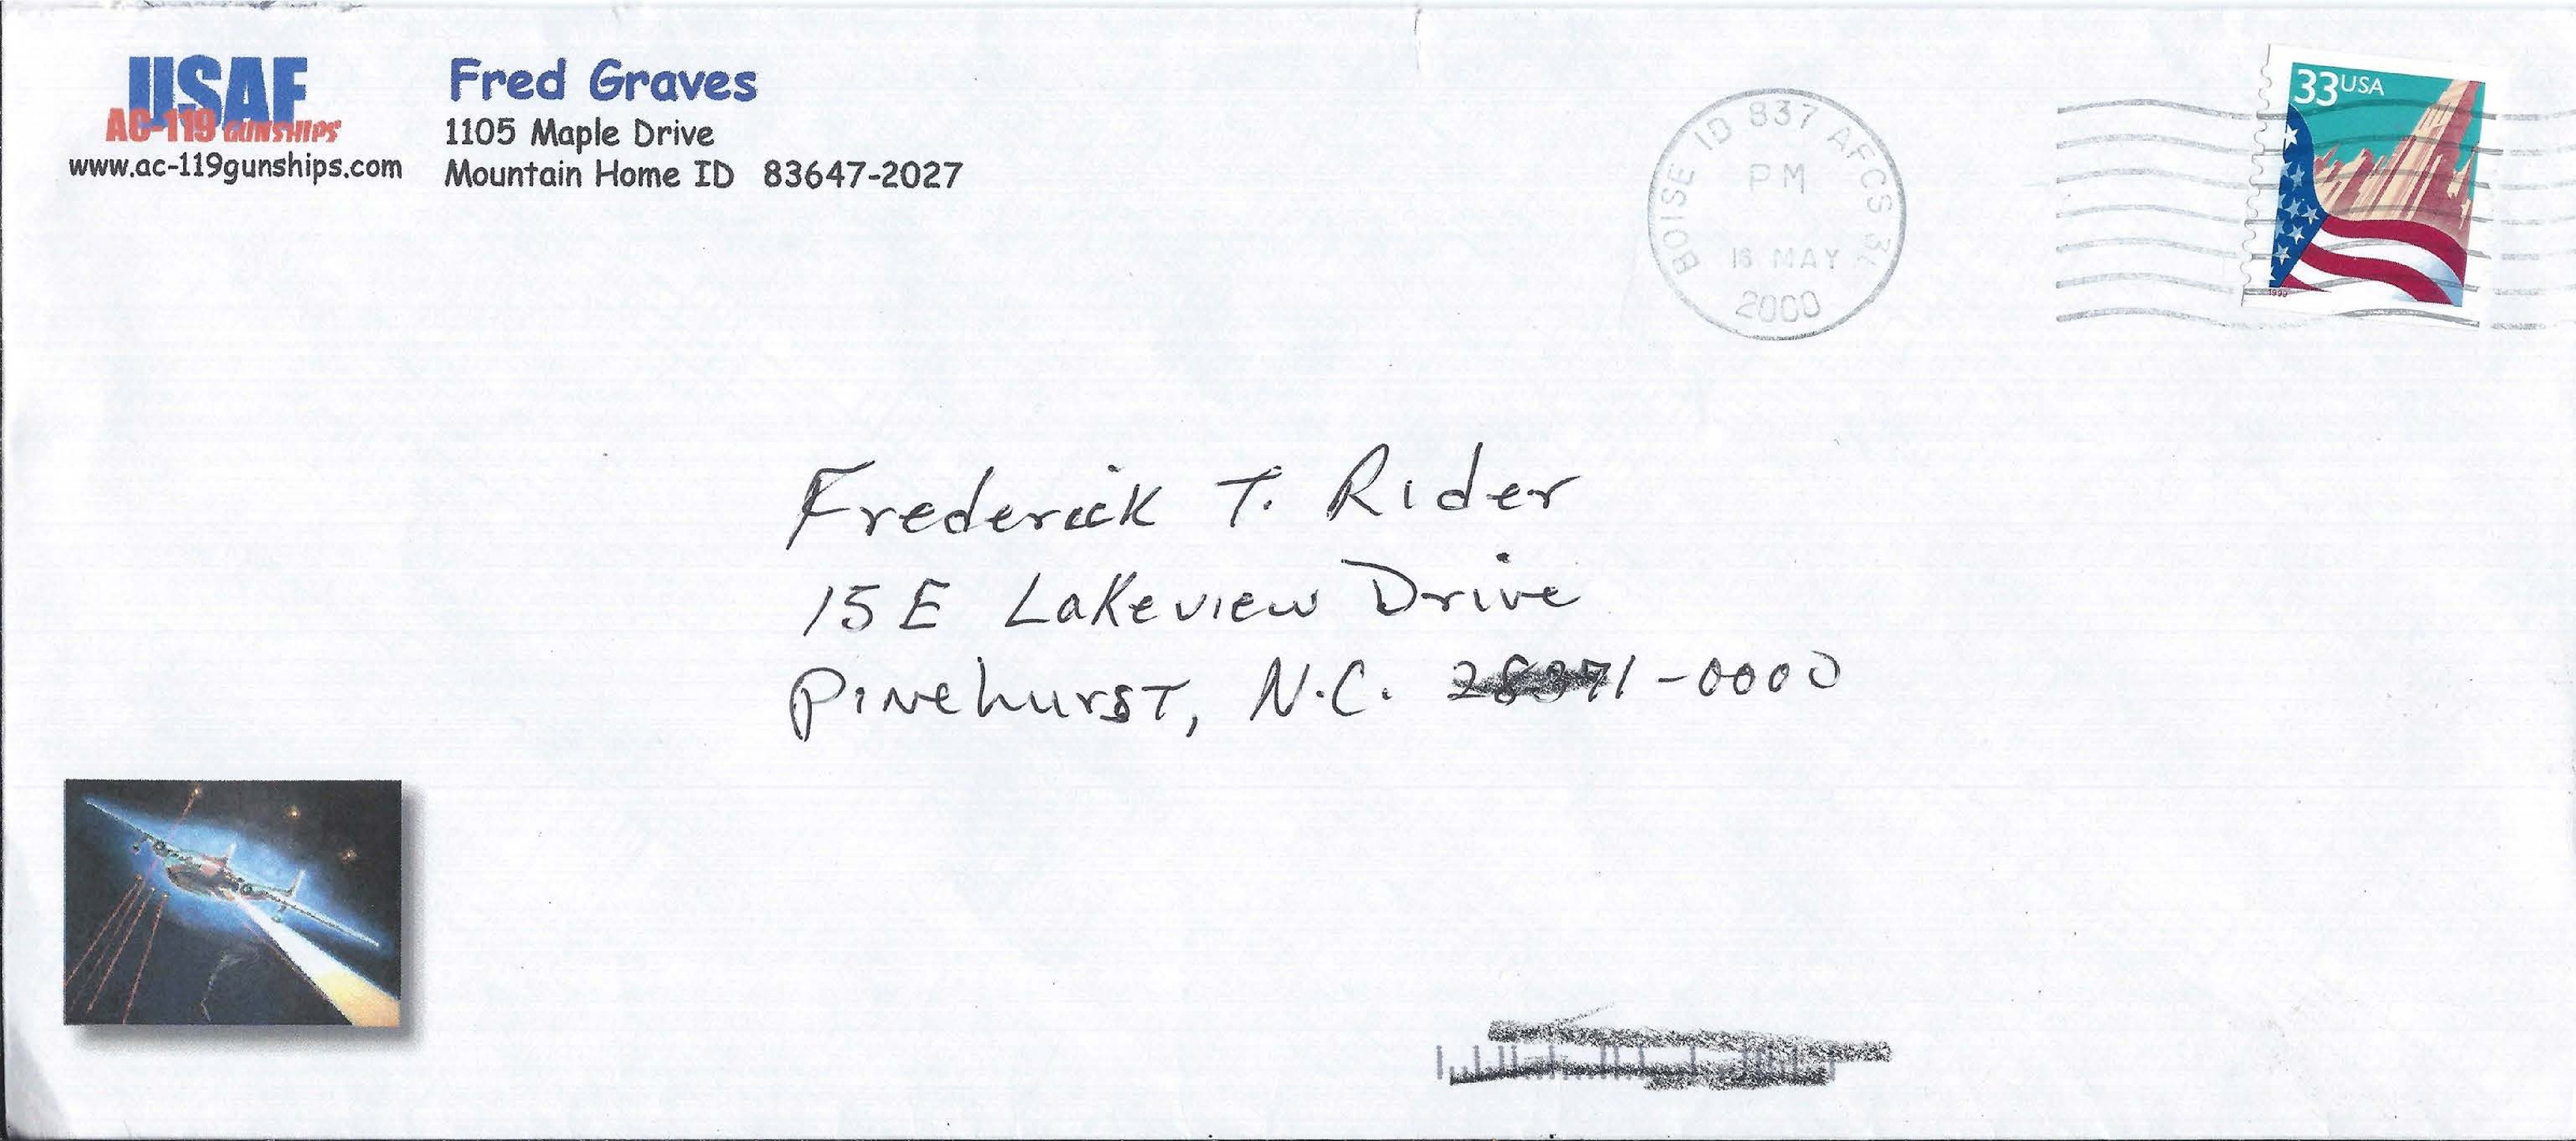 USAF
AC-119 GUNSHIPS
www.ac-119gunships.com
Fred Graves
1105 Maple Drive
Mountain Home ID 83647-2027
BOISE ID 837 AFCS
PM
16 MAY
2000
33 USA
1999
Frederick T. Rider
15 E Lakeview Drive
Pinehurst, N.C. 28371-0000